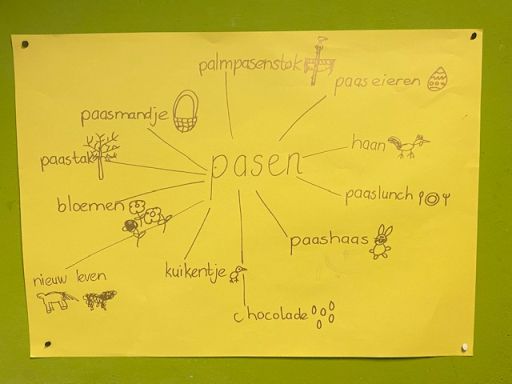 palmpasenstok
paaseieren
paasmandje
haan
paastak
pasen
paaslunch
bloemen
paashaas
nieuw leven
kuikentje
chocolade